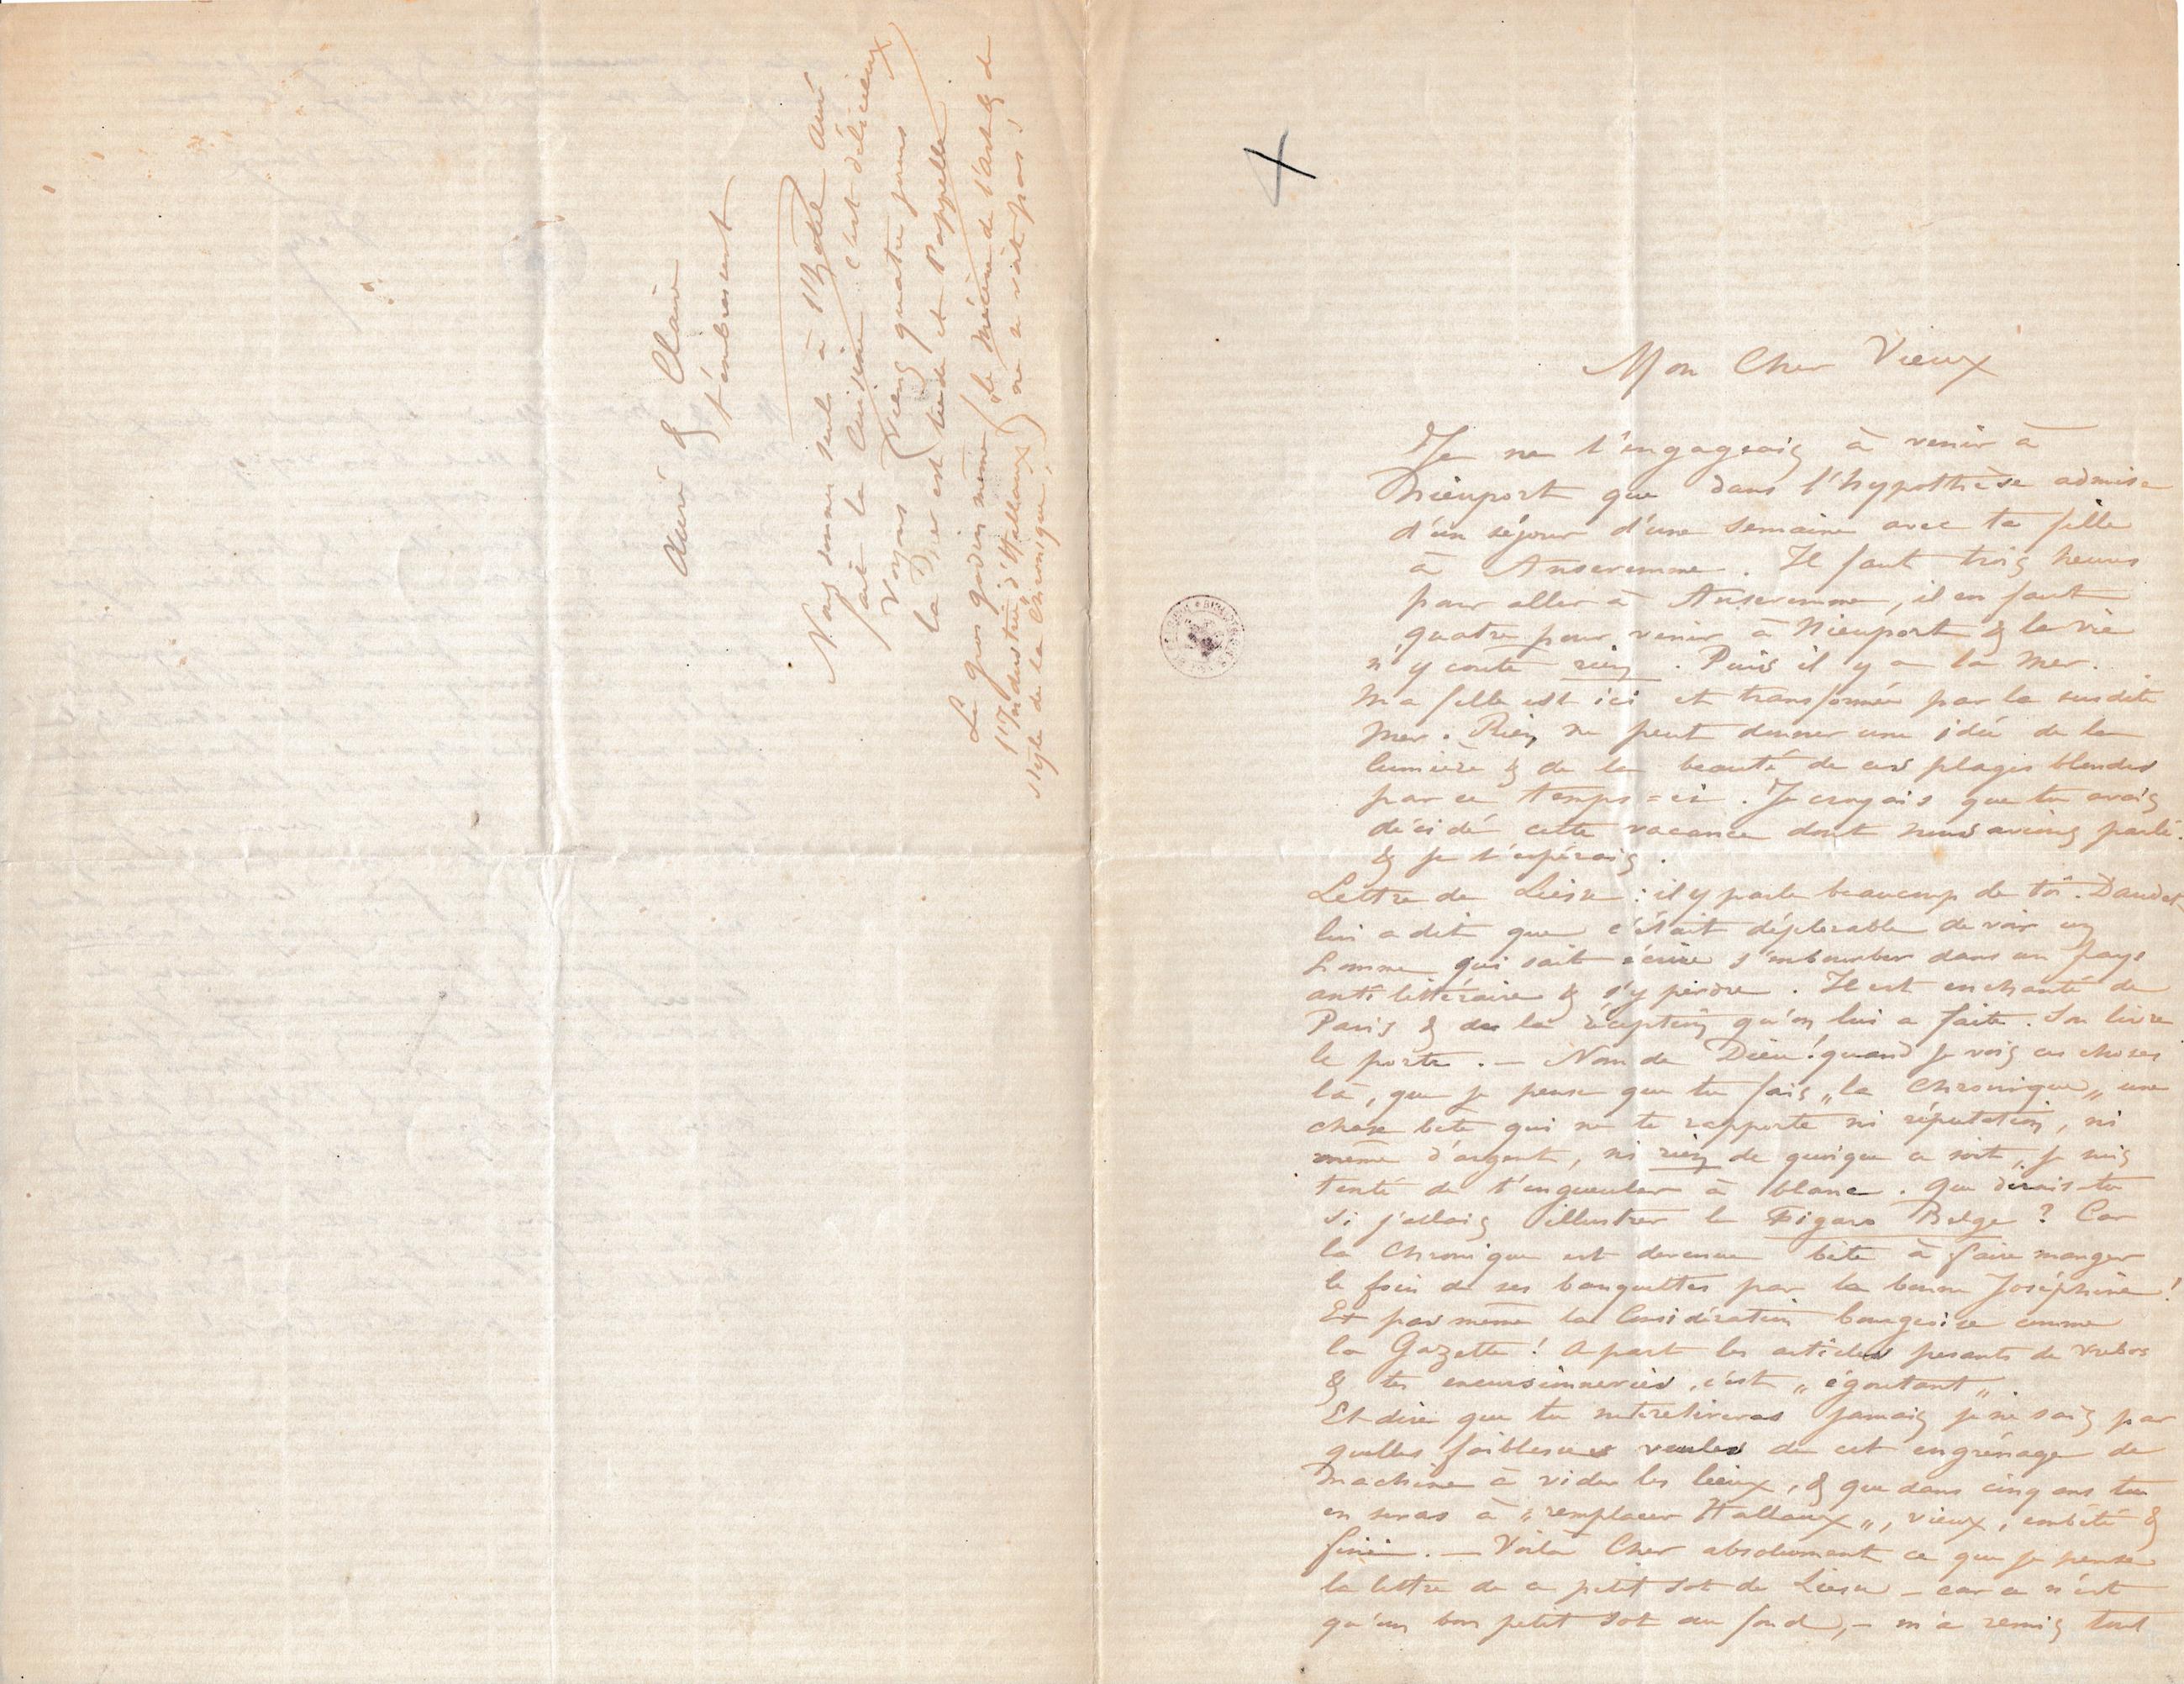 Mon Cher Vieux
Je ne t'engageais à venir à
Nieuport que dans l'hypothèse admise
d'un séjour d'une semaine avec ta fille
à Anseremme. Il faut trois heures
pour aller à Anseremme, il en faut
quatre pour venir à Nieuport & la vie
n'y coute rien. Puis il y a la Mer.
Ma fille est ici et transformée par la susdite
Mer. Rien ne peut donner une idée de la
lumière & de la beauté de ces plages blondes
par ce temps=ci. Je croyais que tu avais
décidé cette vacance dont nous avions parlé.
& je t'espérais.
Lettre de Liesse : il y parle beaucoup de toi. Daudet
lui a dit que c'était déplorable de voir un
homme qui sait écrire s'embourber dans un pays
anti littéraire & s'y perdre. Il est enchanté de
Paris & de la réception qu'on lui a faite. Son livre
le porte. — Nom de Dieu! quand je vois ces choses
là, que je pense que tu fais „la Chronique„ une
chose bête qui ne te rapporte ni réputation, ni
même d'argent, ni rien de quoique ce soit, je suis
tenté de t'engueuler à blanc. Que dirais-tu
si j'allais illustrer le Figaro Belge ? Car
la Chronique est devenue bête à faire manger
le foin de ses banquettes par la bonne Joséphine!
Et pas même la Considération bourgeoise comme
la Gazette! A part les articles pesants de
& tes excursionneries, c'est „égoutant„.
Et dire que tu ne te retireras jamais je ne sais par
quelles faiblesses veules de cet engrénage de
Machine à vider les lieux, & que dans cinq ans tu
en seras à „remplacer Hallaux„, vieux, embêté &
fini. — Voilà Cher absolument ce que je pense
la lettre de ce petit sot de Liesse — car ce n'est
qu'un bon petit sot au fond, — m'a remis tout
Auré & Claire
t'embrassent
Nous sommes seuls à l'hotel Auré
fait la Cuisine c'est délicieux
Voyons (Viens quatre jours
la Mer est tiède et t'appelle
Le gros gredin même (le Mécène de l'art & de
l'Industrie d'Hallaux) ne te voit pas!
style de la Chronique,)